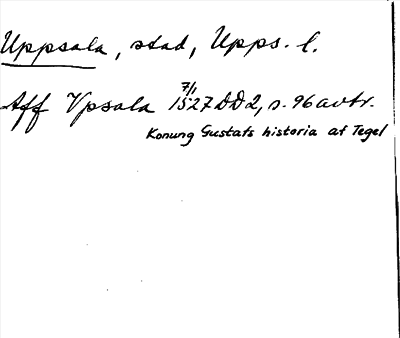 Uppsala, stad, Upps. l.
7/1
Aff Vpsala 1527 DD2, s. 96 avtr.
Konung Gustafs historia af Tegel